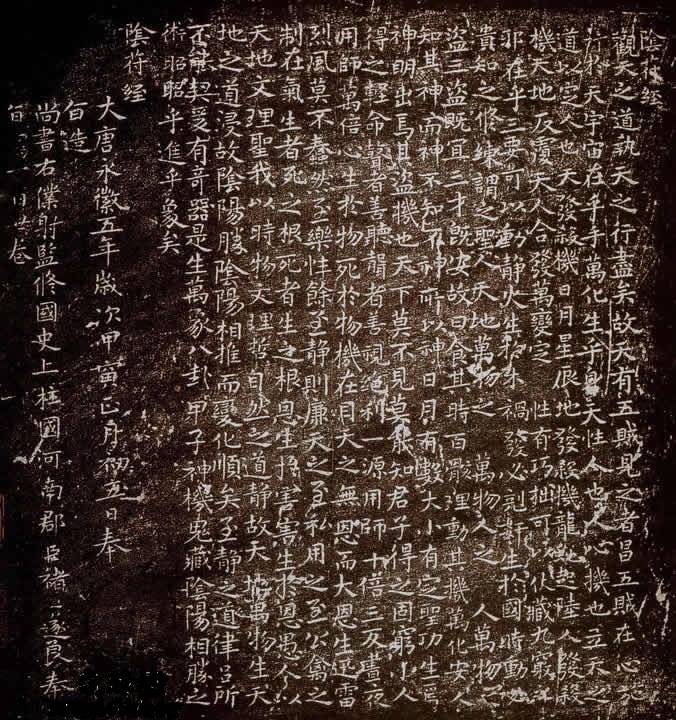 陰符經
觀天之道執天之行盡矣故天有五賊見之者昌五賊在心
行於天宇宙在乎手萬化生乎身天性人也人心機也立天之
道以定人也天發殺機日月星辰地發殺機龍蛇起陸人發殺
機天地反覆天人合發萬變定性有巧拙可以伏藏九竅
邪在乎三要可以動靜火生於木禍發必剋姧生於國時動必
貴知之修練謂之聖人天地萬物之萬物人之人萬物之
盜三盜既宜三才既安故曰食其時百骸理動其機萬化安人
知其神而神不知不神所以神日月有數大小有定聖功生焉
神明出焉其盜機也天下莫不見莫能知君子得之固窮小人
得之輕命瞽者善聽聾者善視絕利一源用師十倍三反晝夜
用師萬倍心生於物死於物機在目天之無恩而大恩生迅雷
烈風莫不蠢然至樂性餘至靜則廉天之至私用之至公禽之
制在氣生者死之根死者生之根恩生於害害生於恩愚人以
天地文理聖我以時物文理哲自然之道靜故天地萬物生天
地之道浸故陰陽勝陰陽相推而變化順矣至靜之道律呂所
不能契爰有奇器是生萬象八卦甲子神機鬼藏陰陽相勝之
術昭昭乎進乎象矣
陰符經
大唐永徽五年歲次甲寅正月初五日奉
旨造
尚書右僕射監修國史上柱國河南郡臣褚遂良奉
旨